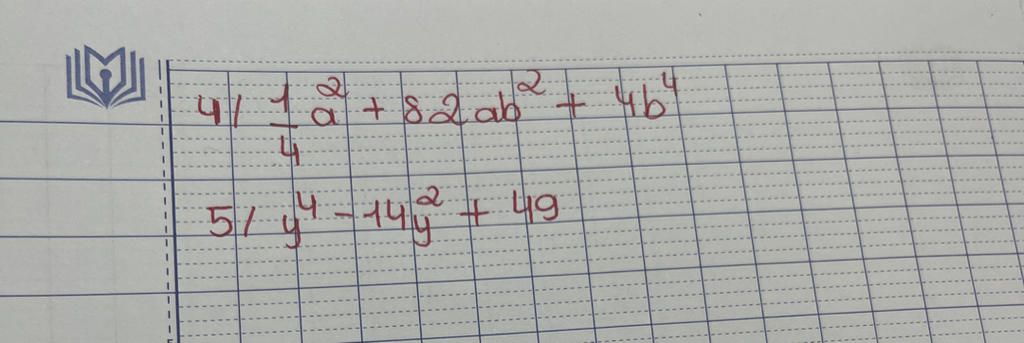 4/ 1/4 a² + 82ab² + 4b⁴
5/ y⁴ - 14y² + 49